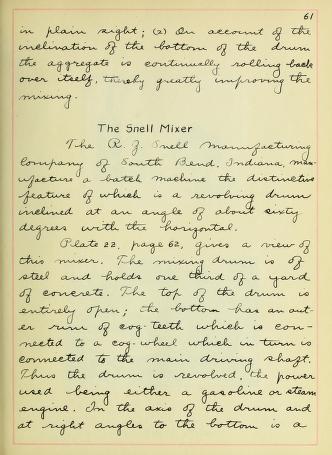 61
in plain sight; (2) On account of the
inclination of the bottom of the drum
the aggregate is continually rolling back
over itself, thereby greatly improving the
mixing.
The Snell Mixer
The R. Z. Snell Manufacturing
Company of South Bend, Indiana, man-
ufacture a batch machine the distinctive
feature of which is a revolving drum
inclined at an angle of about sixty
degrees with the horizontal.
Plate 22, page 62, gives a view of
this mixer. The mixing drum is of
steel and holds one third of a yard
of concrete. The top of the drum is
entirely open; the bottom has an out-
er rim of cog-teeth which is con-
nected to a cog-wheel which in turn is
connected to the main driving shaft.
Thus the drum is revolved, the power
used being either a gasoline or steam
engine. In the axis of the drum and
at right angles to the bottom is a